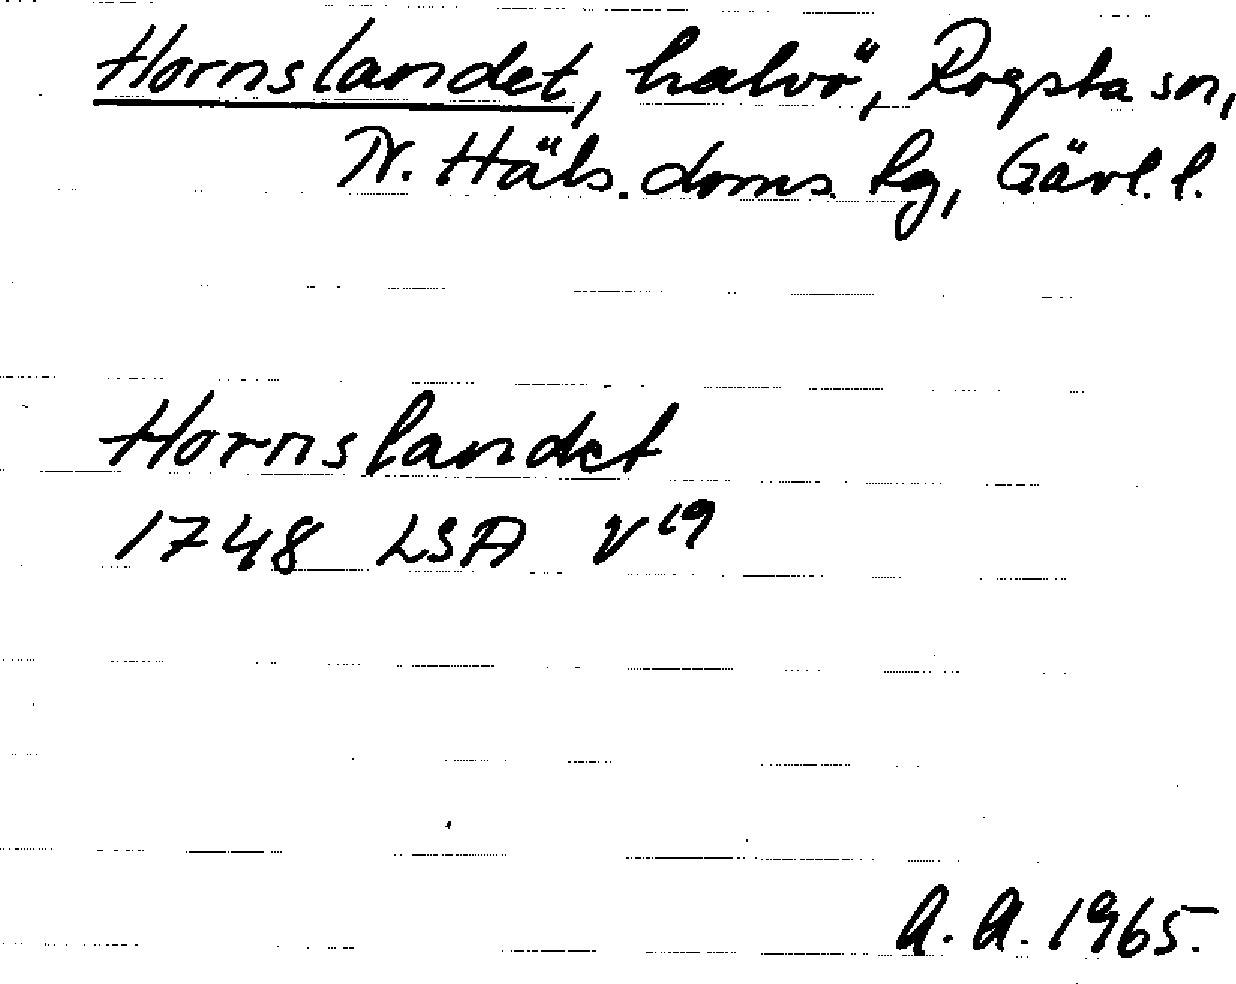 Hornslandet, halvö, Rogsta sn,
N. Häls. doms. lg, Gävl. l.
Hornslandet
1748 LSA V 19
A. A. 1965.